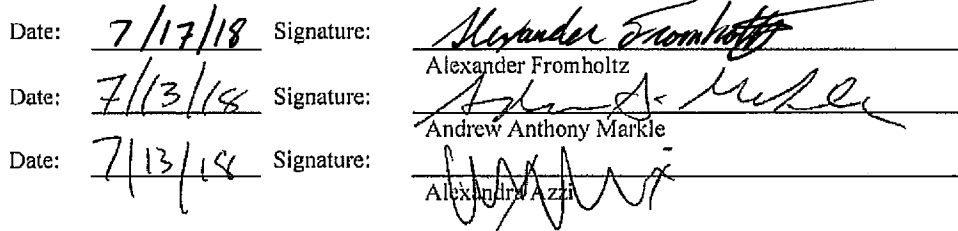 Date: 7/17/18 Signature: Alexander Fromholtz
Alexander Fromholtz
Date: 7/13/18 Signature:
Andrew Anthony Markle
Date: 7/13/18 Signature:
Alexandra Azzi